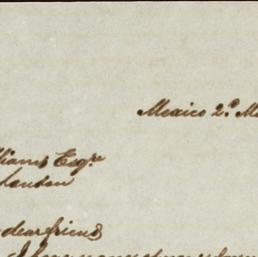 Mexico 2.d M
liams Esqre
London
dear friend